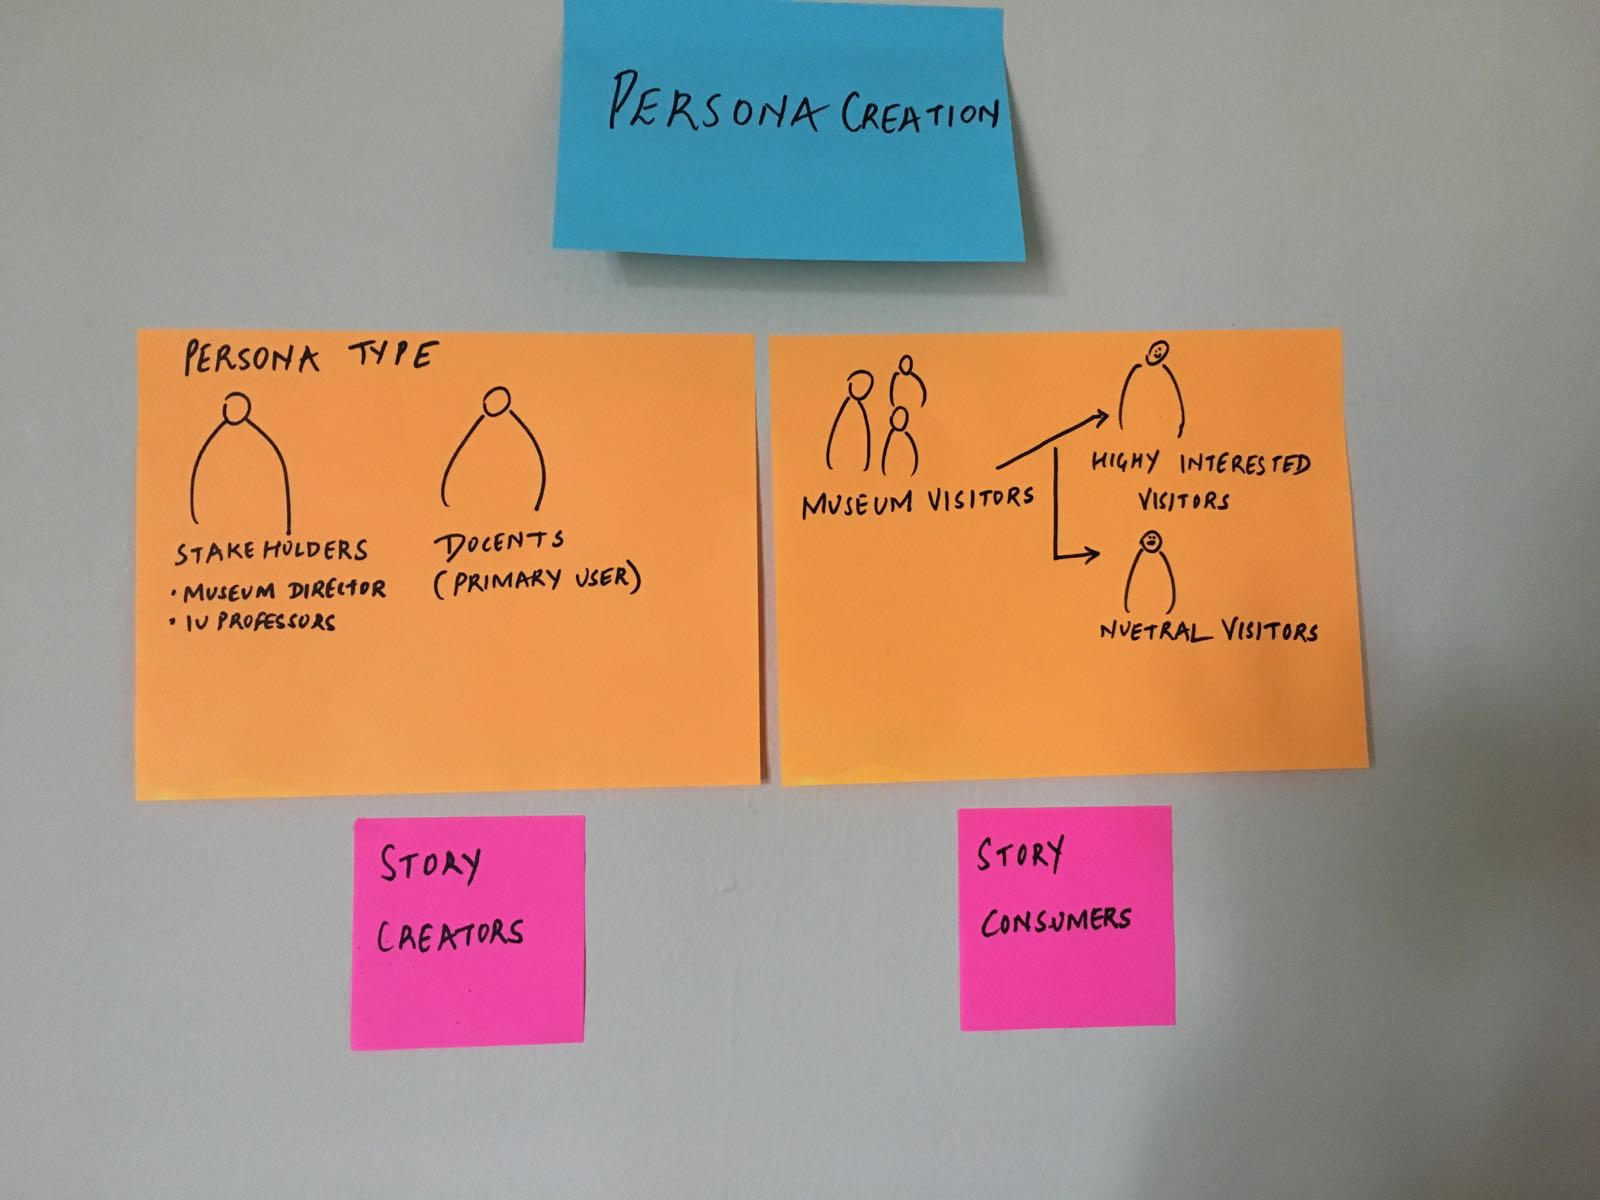 PERSONA CREATION
PERSONA TYPE
STAKEHOLDERS
• MUSEUM DIRECTOR
• IU PROFESSORS
DOCENTS
(PRIMARY USER)
MUSEUM VISITORS
HIGHY INTERESTED
VISITORS
NUETRAL VISITORS
STORY
CREATORS
STORY
CONSUMERS